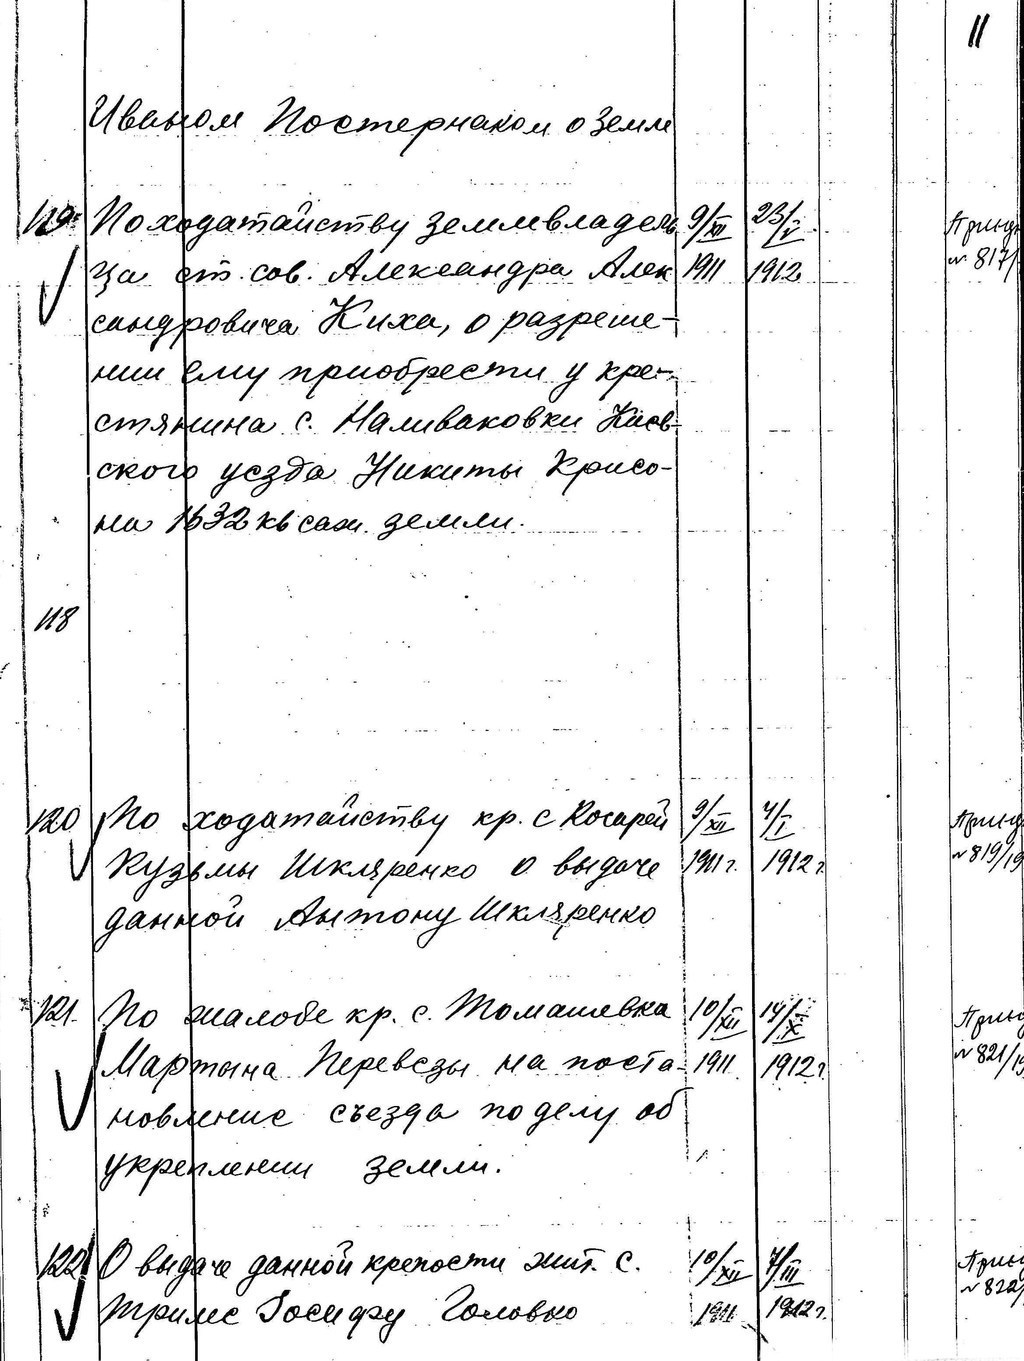 11
Иваном Постернаком о земле
119. По ходатайству землевладель 9/XII 23/IV
ца ст. сов. Александра Алек 1911 1912
сандровича Киха, о разреше-
нии ему приобрести у кре-
стянина с. Наливаковки Киев-
ского уезда Никиты Крисо-
на 1632 кв саж. земли.
№ 817/
118
120 По ходатайству кр. с Косарей 9/XII 4/I
Кузьмы Шкляренко о выдаче 1911 г. 1912 г. № 819/19
данной Антону Шкляренко
121. По жалобе кр. с. Томашевка 10/XII 14/X
Мартына Перевезы на поста- 1911 1912 г. № 821/19
новление съезда по делу об
укреплении земли.
122 О выдаче данной крепости жит. с. 10/XII 7/III
Триле Иосифу Головко 1911 1912 г. № 822/